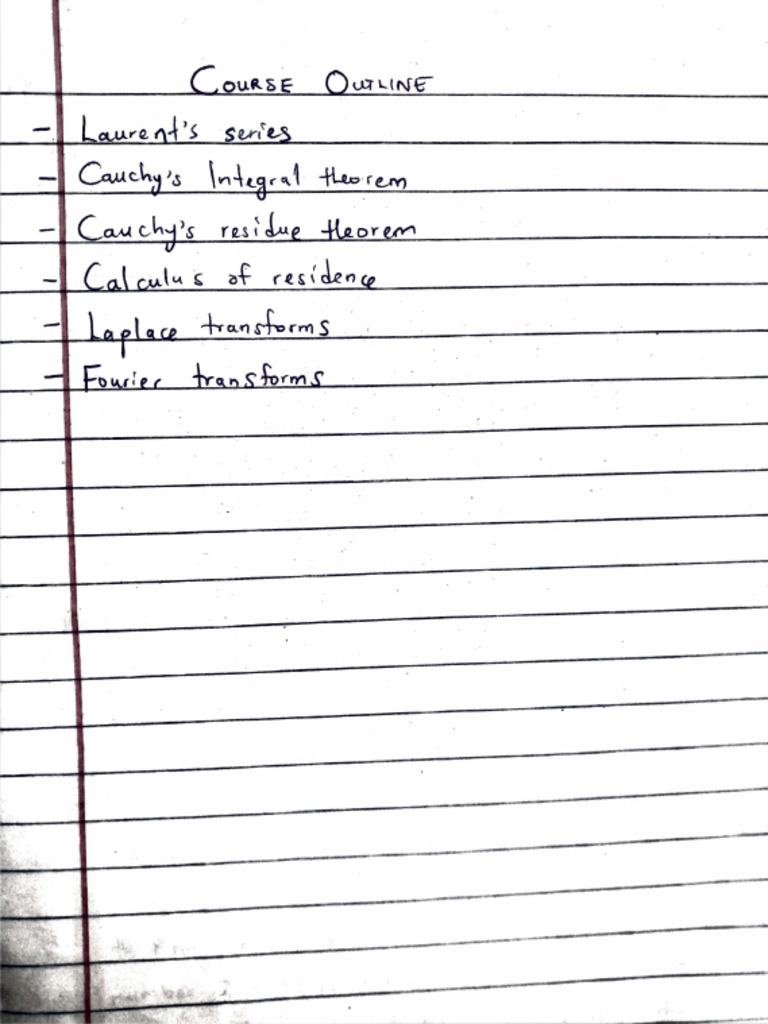 COURSE OUTLINE
- Laurent's series
- Cauchy's Integral theorem
- Cauchy's residue theorem
- Calculus of residence
- Laplace transforms
- Fourier transforms